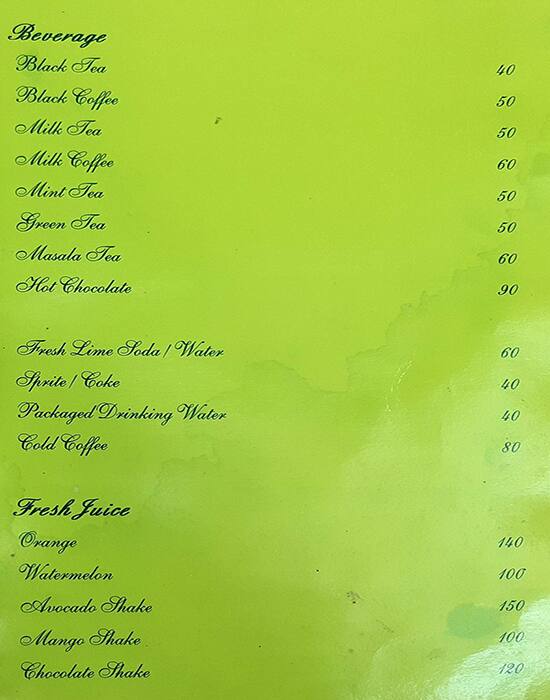 Beverage
Black Tea 40
Black Coffee 50
Milk Tea 50
Milk Coffee 60
Mint Tea 50
Green Tea 50
Masala Tea 60
Hot Chocolate 90
Fresh Lime Soda / Water 60
Sprite / Coke 40
Packaged Drinking Water 40
Cold Coffee 80
Fresh Juice
Orange 140
Watermelon 100
Avocado Shake 150
Mango Shake 100
Chocolate Shake 120